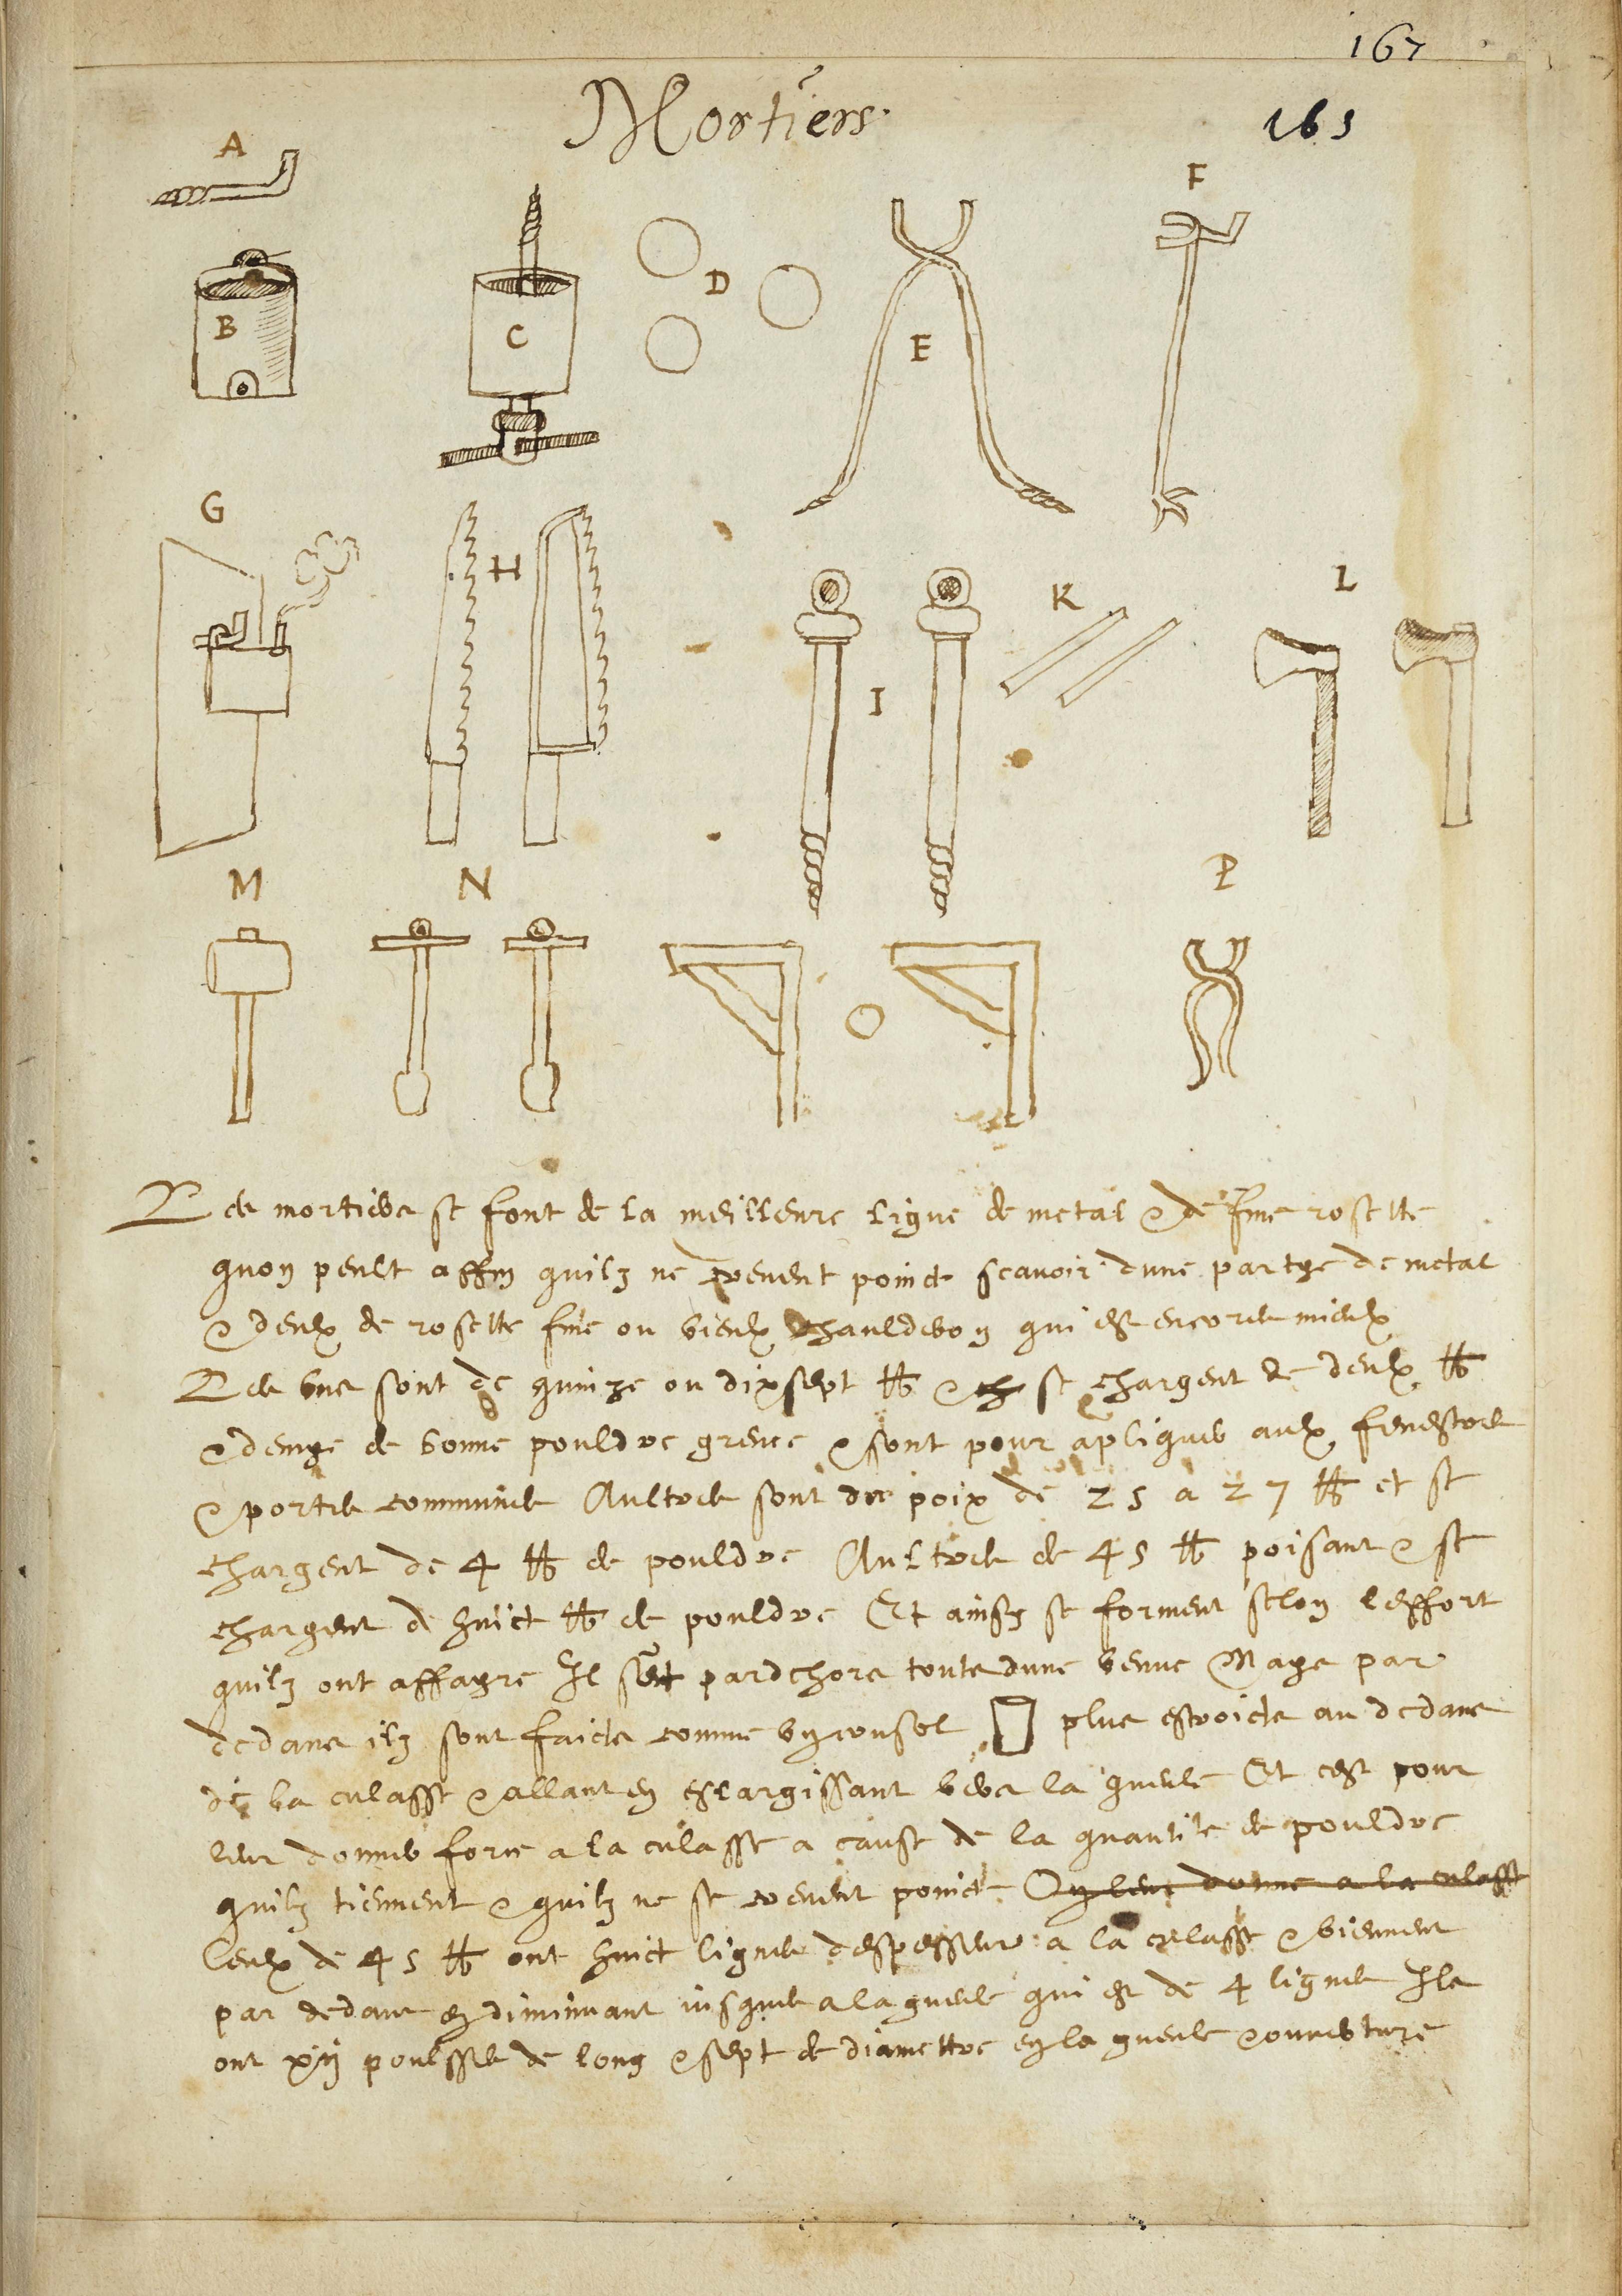 167
Mortiers
165
A
F
B
C
D
E
G
H
I
K
L
M
N
O
P
Les mortiers se font de la meilleure ligue de metal & de fine rosette
quon peult affin quilz ne crevent poinct scavoir dune partye de metal
& deulx de rosette fine ou vieulx chaulderon qui est encores mieulx
Les uns sont de quinze ou dixsept lb & ch se chargent de deulx lb
& demye de bonne pouldre grenee & sont pour apliquer aulx fenestres
& portes communes Aultres sont du poix de 25 a 27 lb et se
chargent de 4 lb de pouldre Aultres de 45 lb poisant & se
chargent de huict lb de pouldre Et ainsy se forment selon leffort
quilz ont affayre Il sont par dehors toutz dune venue Mays par
dedans ilz sont faicts comme un plus estroicts au dedans
de la culasse & allant en eslargissant vers la gueule Et cest pour
leur donner force a la culasse a cause de la quantite de pouldre
quilz tiennent & quilz ne se crevent poinct On leur donne a la culasse
Ceulx de 45 lb ont huict lignes despesseur a la culasse & viennent
par dedans en diminuant jusques a la gueule qui est de 4 lignes Ils
ont poulsses de long & sept de diamettre en la gueule & ouverture